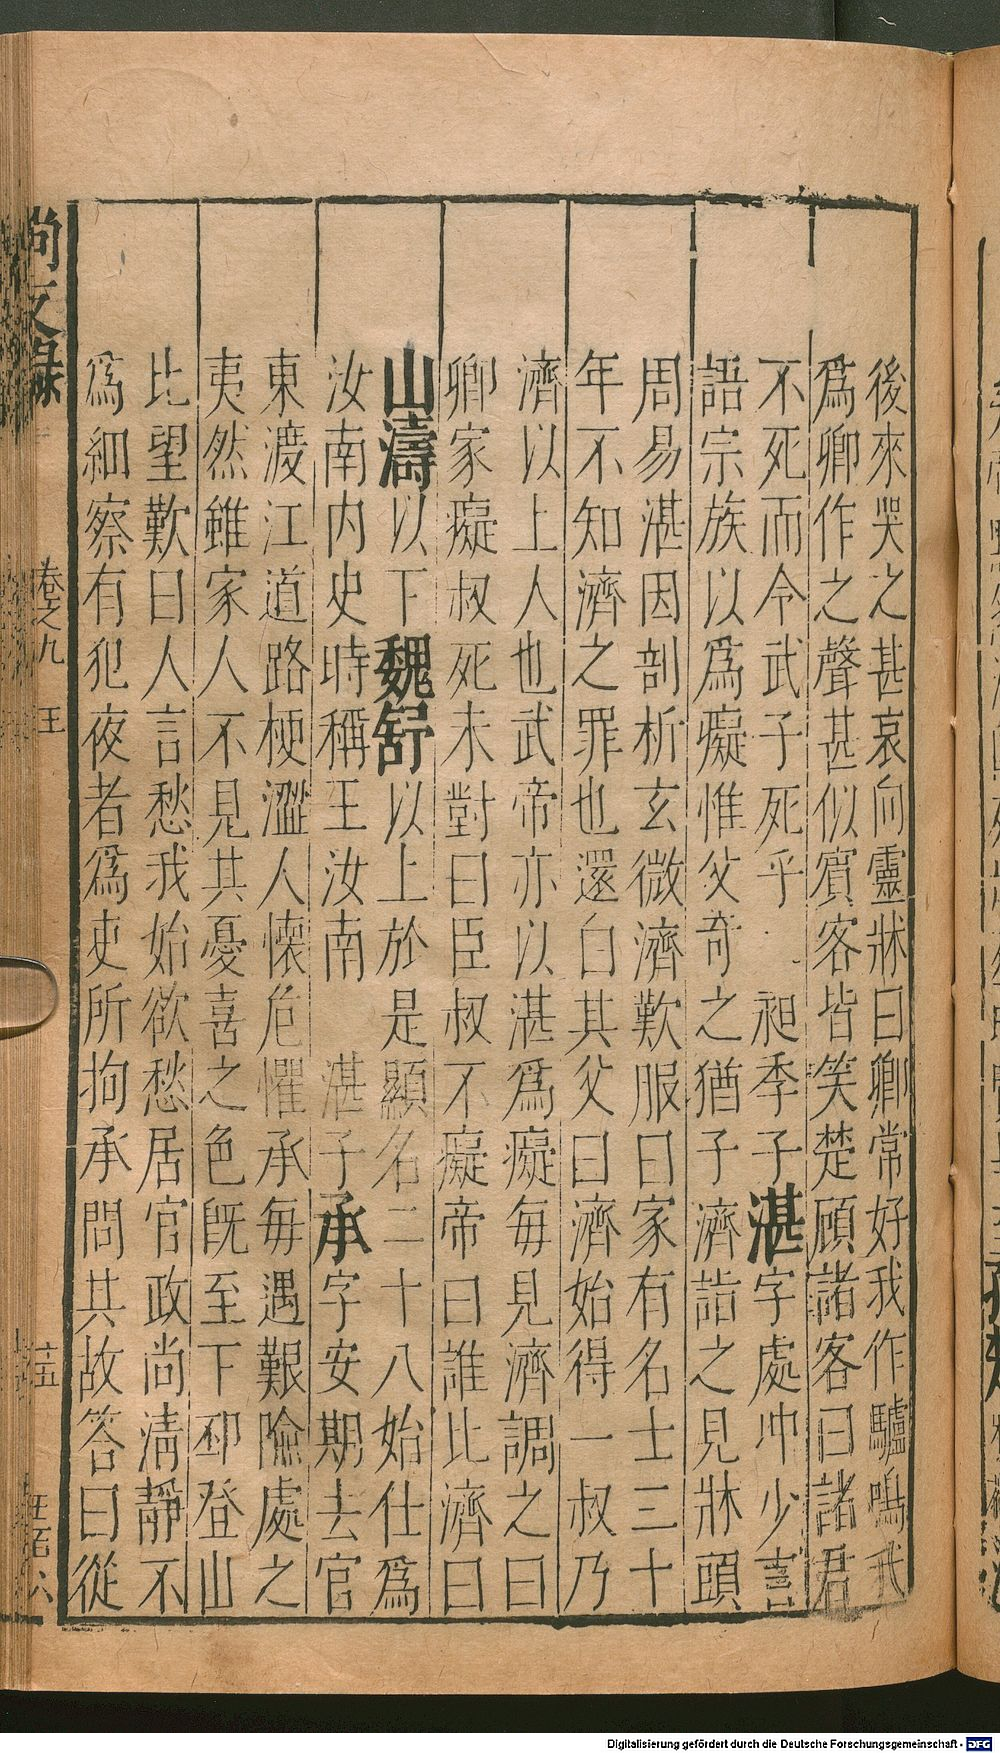 後來哭之甚哀向靈牀曰卿常好我作驢鳴我
爲卿作之聲甚似賓客皆笑楚顧諸客曰諸君
不死而令武子死乎 昶季子湛字處冲少言
語宗族以爲癡惟父奇之猶子濟詣之見牀頭
周易湛因剖析玄微濟歎服曰家有名士三十
年不知濟之罪也還白其父曰濟始得一叔乃
濟以上人也武帝亦以湛爲癡每見濟調之曰
卿家癡叔死未對曰臣叔不癡帝曰誰比濟曰
山濤以下魏舒以上於是顯名二十八始仕爲
汝南内史時稱王汝南 湛子承字安期去官
東渡江道路梗澀人懷危懼承每遇艱險處之
夷然雖家人不見其憂喜之色旣至下邳登山
北望歎曰人言愁我始欲愁居官政尚淸靜不
爲細察有犯夜者爲吏所拘承問其故答曰從
尚友錄 卷之九 王 十五
Digitalisierung gefördert durch die Deutsche Forschungsgemeinschaft - DFG